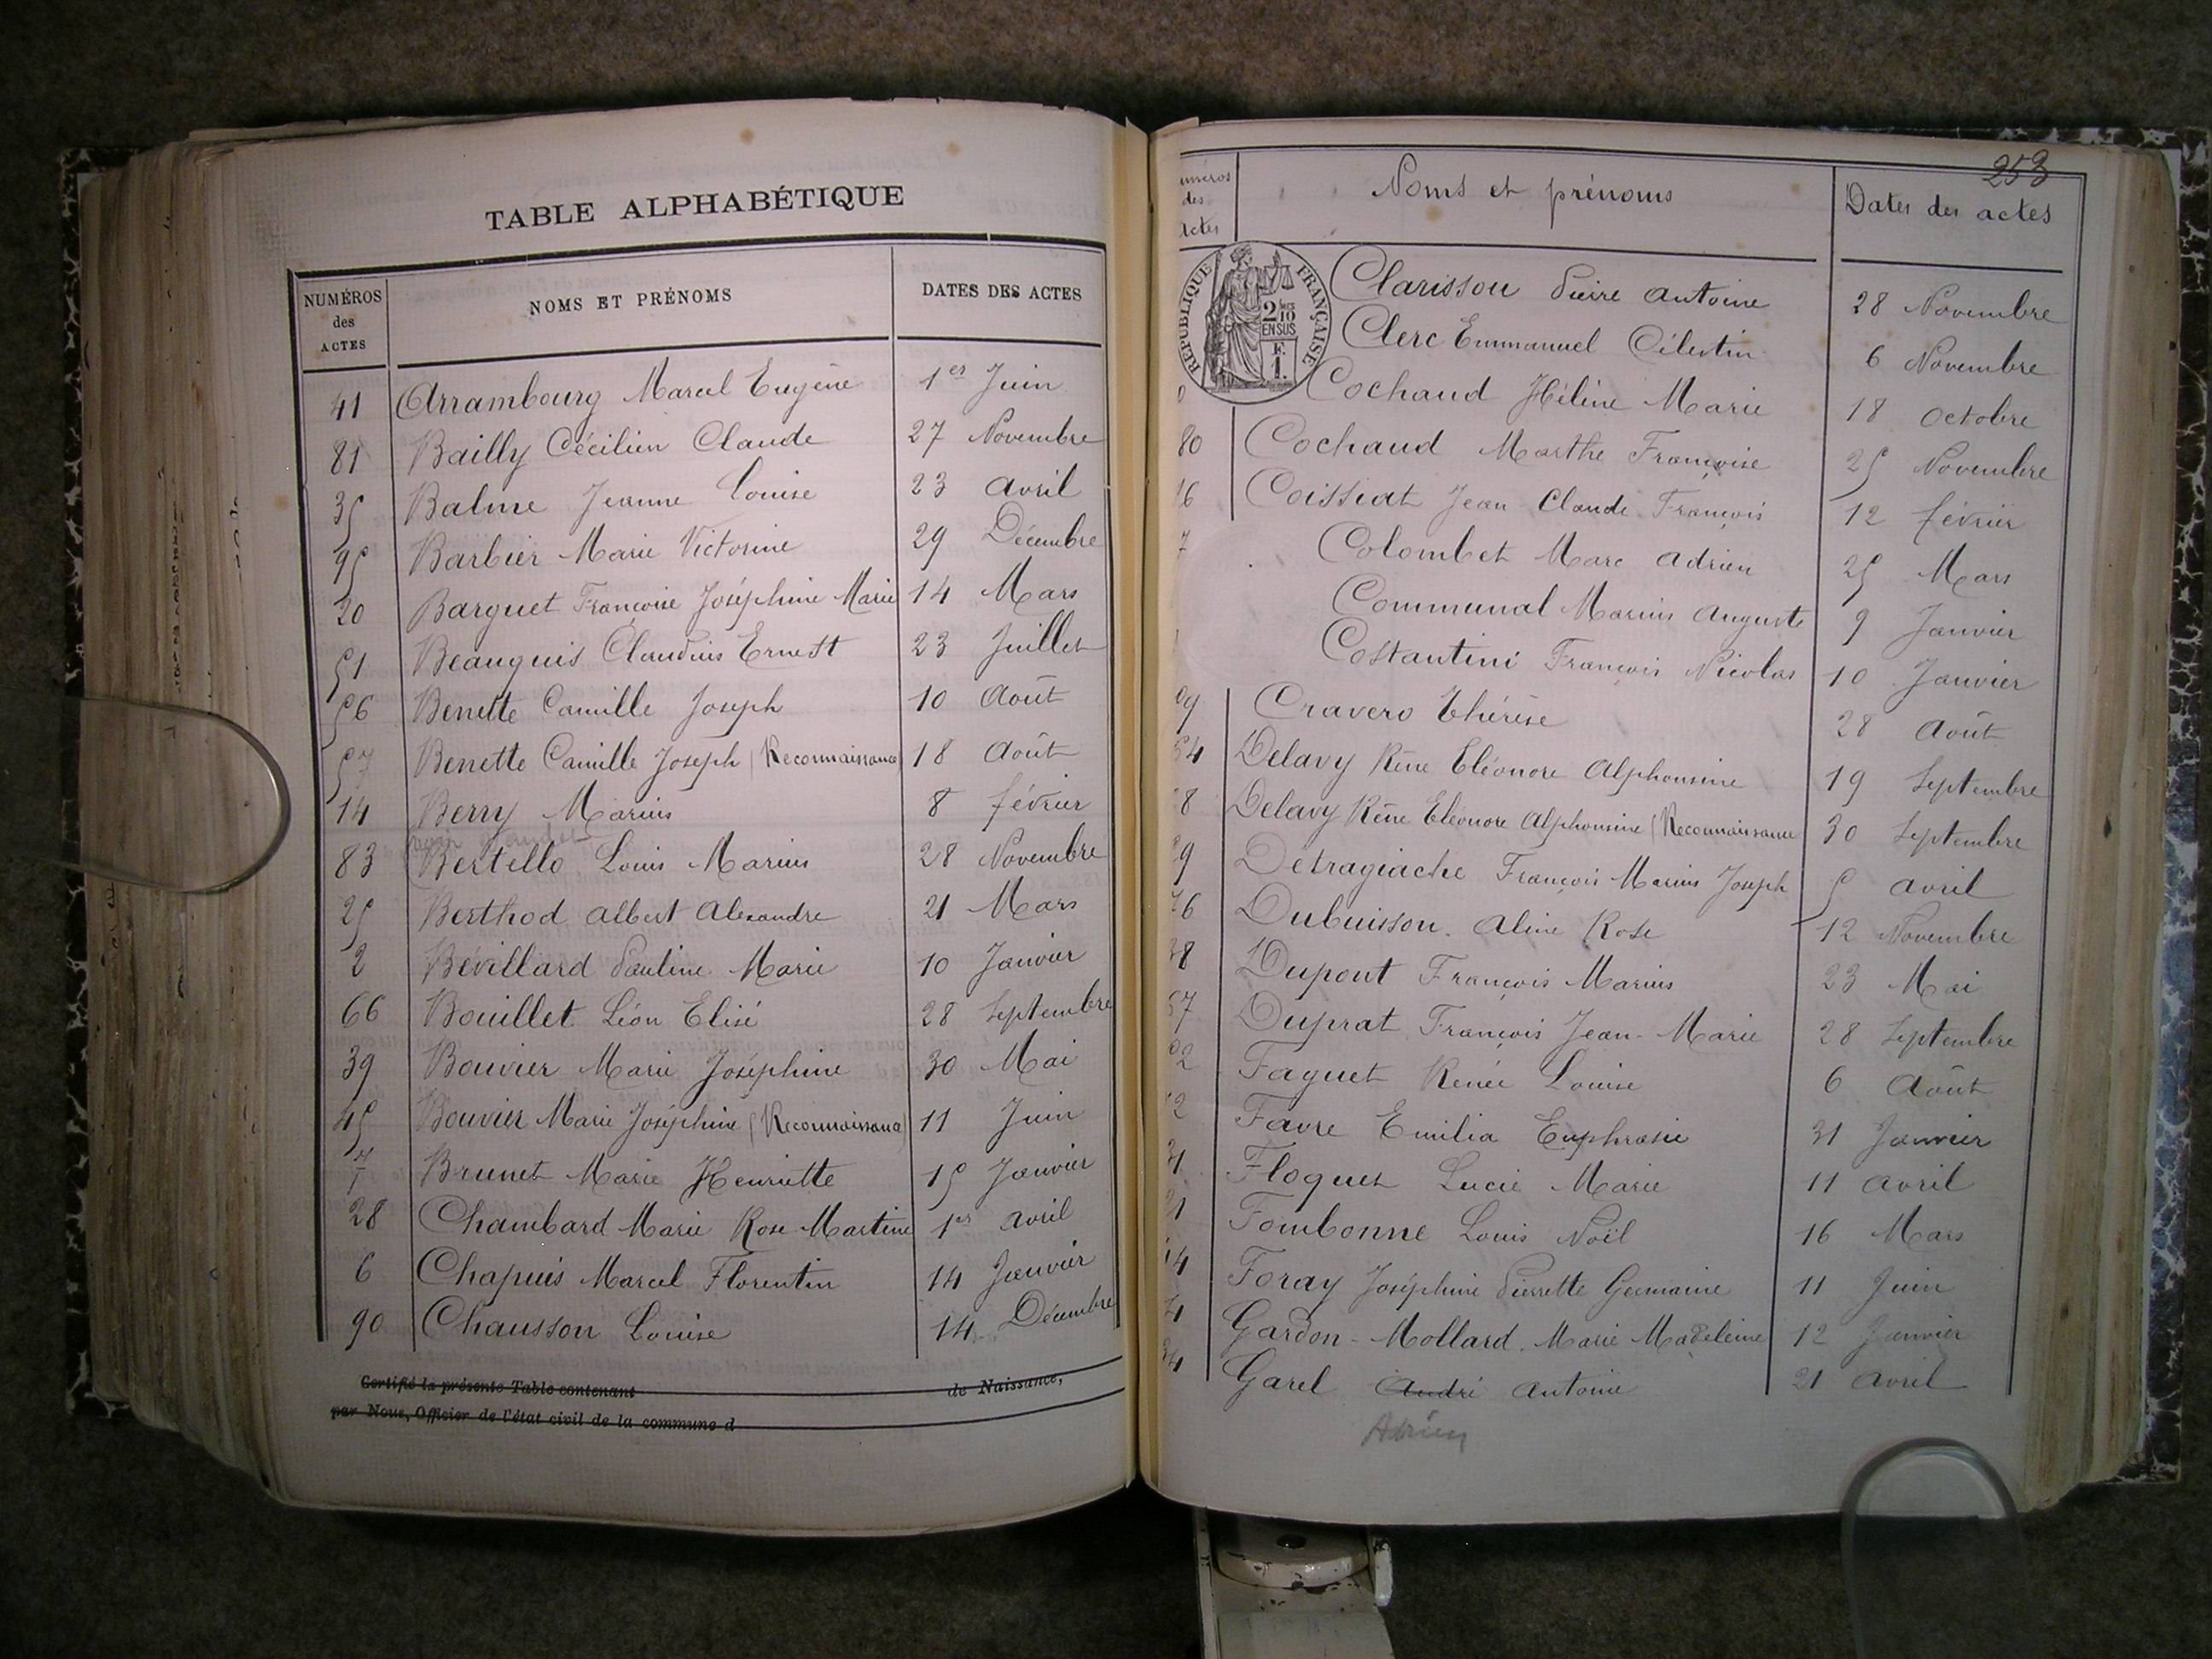 TABLE ALPHABÉTIQUE
NUMÉROS des ACTES NOMS ET PRÉNOMS DATES DES ACTES
41 Arrambourg Marcel Eugène 1er Juin
81 Bailly Cécilien Claude 27 Novembre
35 Balme Jeanne Louise 23 Avril
95 Barbier Marie Victorine 29 Décembre
20 Barguet Françoise Joséphine Marie 14 Mars
51 Beauquis Claudius Ernest 23 Juillet
56 Benette Camille Joseph 10 Août
57 Benette Camille Joseph (Reconnaissance) 18 Août
14 Berry Marius 8 février
83 Bertello Louis Marius 28 Novembre
25 Berthod Albert Alexandre 21 Mars
2 Bévillard Pauline Marie 10 Janvier
66 Bouillet Léon Elisé 28 Septembre
39 Bouvier Marie Joséphine 30 Mai
45 Bouvier Marie Joséphine (Reconnaissance) 11 Juin
7 Brunet Marie Henriette 15 Janvier
28 Chambard Marie Rose Martine 1er Avril
6 Chapuis Marcel Florentin 14 Janvier
90 Chausson Louise 14 Décembre
Certifié la présente Table contenant de Naissance,
par Nous, Officier de l'état civil de la commune d
253
uméros des Actes Noms et prénoms Dates des actes
RÉPUBLIQUE FRANÇAISE
2/10 EN SUS
F. 1.
Clarissou Pierre Antoine 28 Novembre
Clerc Emmanuel Célestin 6 Novembre
0 Cochaud Hélène Marie 18 Octobre
80 Cochaud Marthe Françoise 25 Novembre
16 Coissiat Jean Claude François 12 février
7 Colombet Marc Adrien 25 Mars
Communal Marius Auguste 9 Janvier
Costantini François Nicolas 10 Janvier
Cravero Thérèse 28 Août
64 Delavy Rène Eléonore Alphonsine 19 Septembre
8 Delavy Rène Eléonore Alphonsine (Reconnaissance 30 Septembre
29 Detragiache François Marius Joseph 5 Avril
76 Dubuisson Aline Rose 12 Novembre
38 Dupont François Marius 23 Mai
67 Duprat François Jean-Marie 28 Septembre
Faguet Renée Louise 6 Août
12 Favre Emilia Euphrasie 31 Janvier
31 Floquet Lucie Marie 11 Avril
21 Fombonne Louis Noël 16 Mars
44 Foray Joséphine Pierrette Germaine 11 Juin
4 Gardon-Mollard Marie Madeleine 12 Janvier
34 Garel André Antoine 21 Avril
Adrien